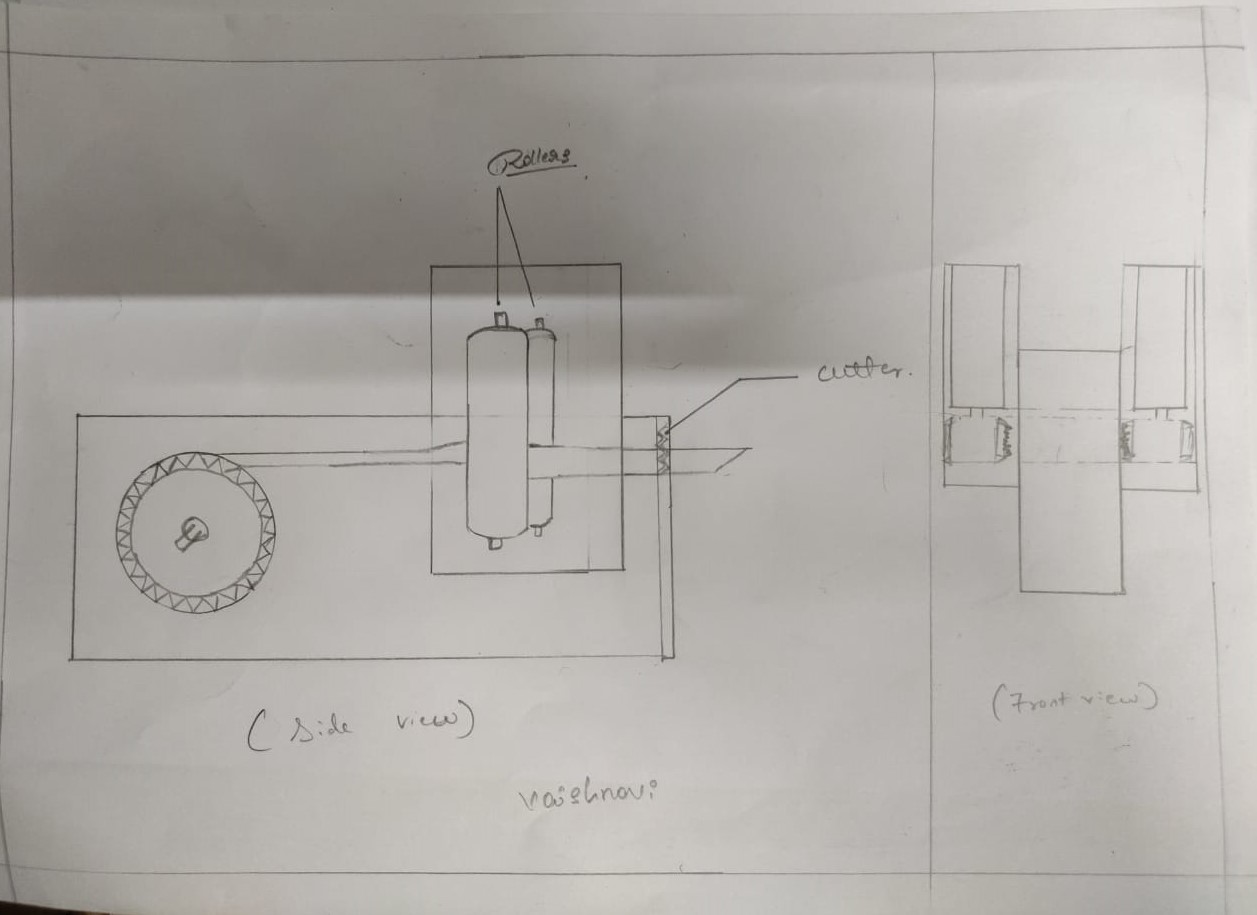 Rollers
cutter.
(side view)
(Front view)
vaishnavi